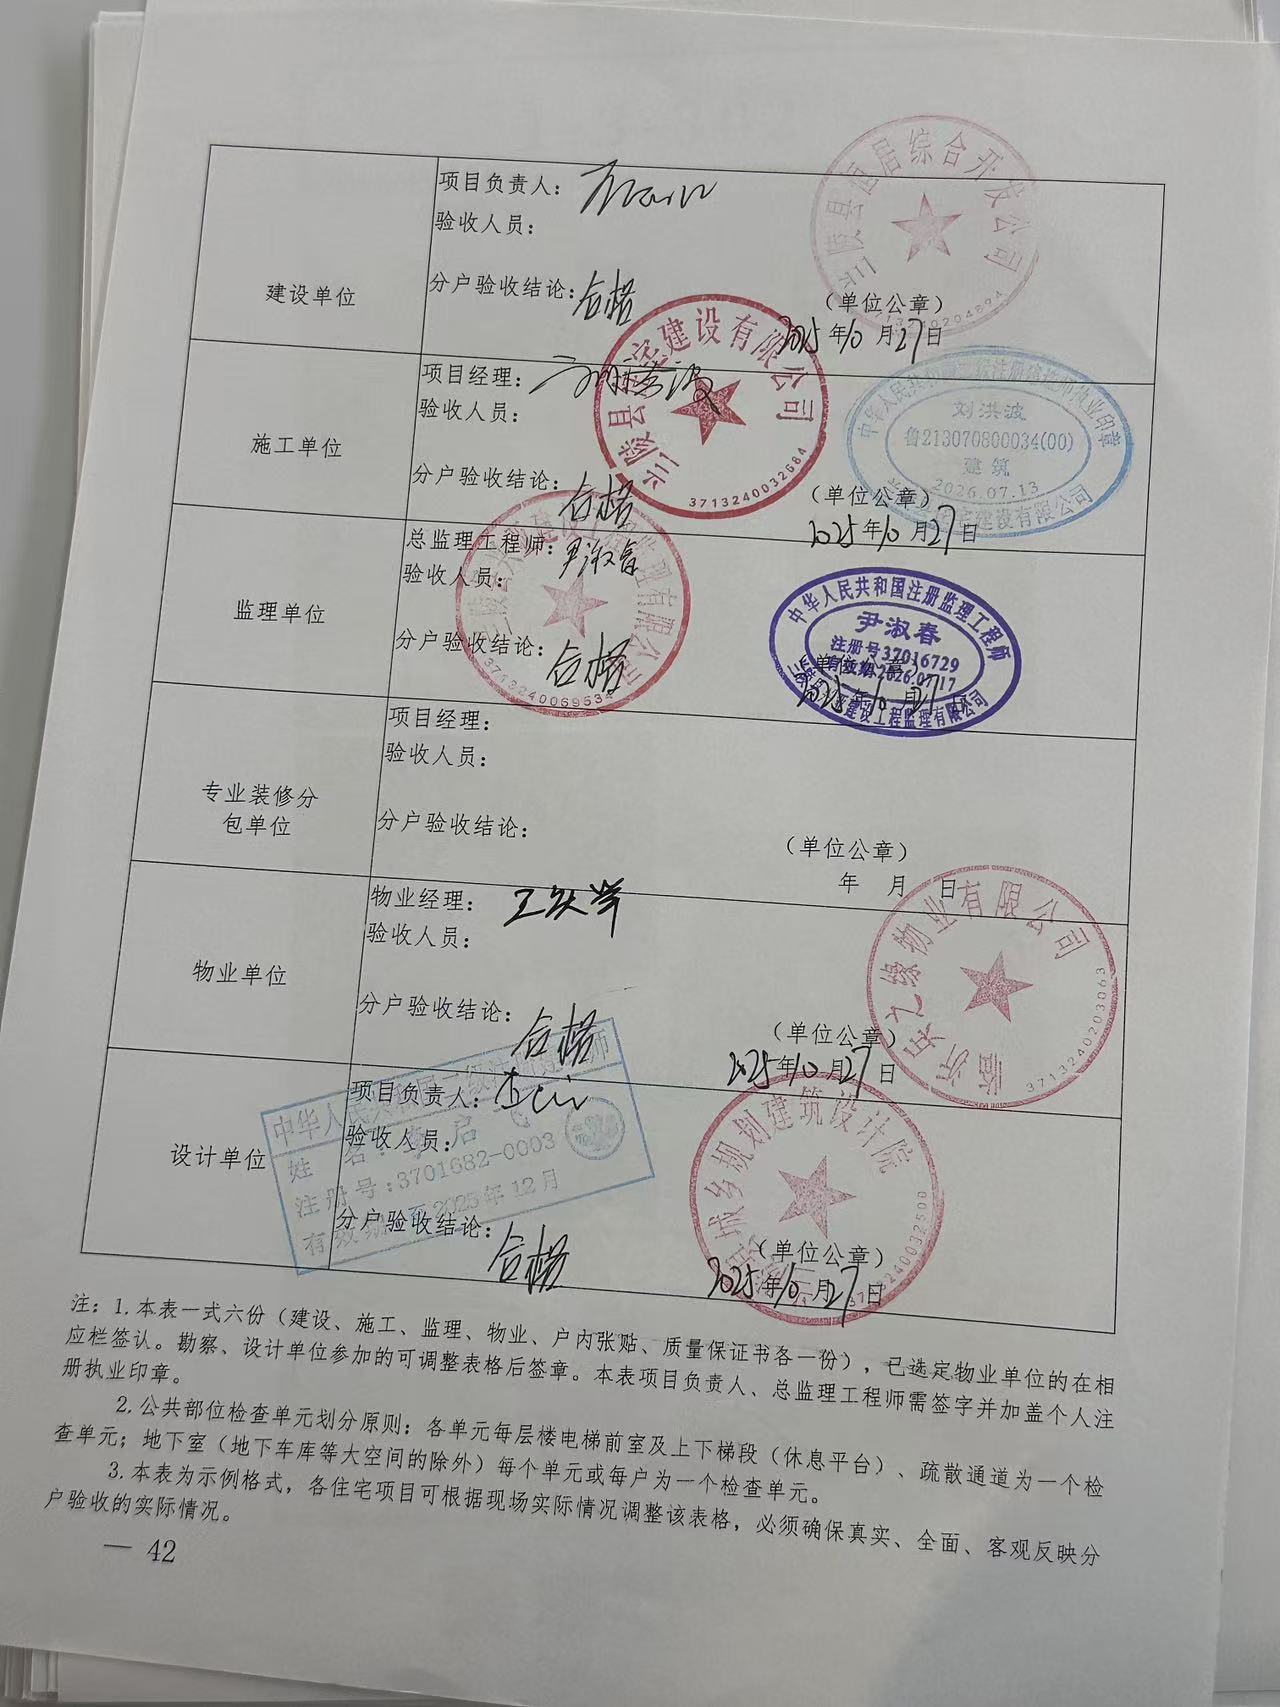 建设单位
项目负责人：
验收人员：
分户验收结论：合格
（单位公章）
2025年10月27日
兰陵县恒居综合开发公司
施工单位
项目经理：
验收人员：
分户验收结论：合格
（单位公章）
2025年10月27日
建设有限公司
3713240032684
刘洪波
鲁213070800034(00)
建筑
2026.07.13
监理单位
总监理工程师：尹淑春
验收人员：
分户验收结论：合格
（单位公章）
2025年10月27日
3713240069534
中华人民共和国注册监理工程师
尹淑春
注册号37016729
有效期2026.07.17
建设工程监理有限公司
专业装修分
包单位
项目经理：
验收人员：
分户验收结论：
（单位公章）
年 月 日
物业单位
物业经理：
验收人员：
分户验收结论：合格
（单位公章）
2025年10月27日
物业有限公司
3713240203063
设计单位
项目负责人：
验收人员：
分户验收结论：合格
（单位公章）
2025年10月27日
城乡规划建筑设计院
注册号：3701682-0003
2025年12月
注：1.本表一式六份（建设、施工、监理、物业、户内张贴、质量保证书各一份），已选定物业单位的在相
应栏签认。勘察、设计单位参加的可调整表格后签章。本表项目负责人、总监理工程师需签字并加盖个人注
册执业印章。
2.公共部位检查单元划分原则：各单元每层楼电梯前室及上下梯段（休息平台）、疏散通道为一个检
查单元；地下室（地下车库等大空间的除外）每个单元或每户为一个检查单元。
3.本表为示例格式，各住宅项目可根据现场实际情况调整该表格，必须确保真实、全面、客观反映分
户验收的实际情况。
— 42